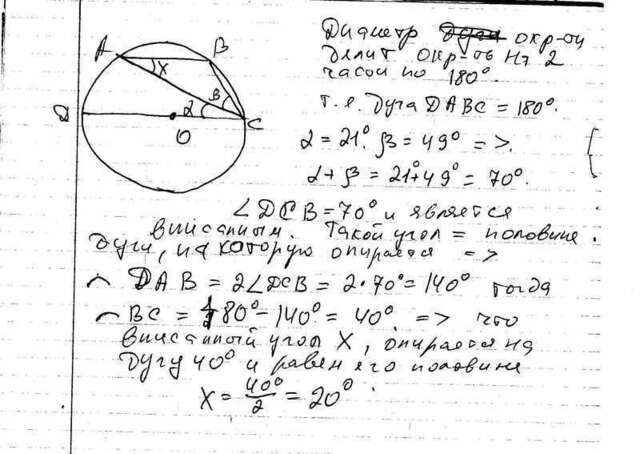 A
B
X
D
2
B
C
O
Диаметр окр-ти
делит окр-ть на 2
части по 180°.
т.е. дуга DABC = 180°.
α = 21°. β = 49° =>.
α + β = 21° + 49° = 70°.
∠DCB = 70° и является
вписанным. Такой угол = половине
дуги, на которую опирается =>
⌒ DAB = 2∠DCB = 2·70° = 140° тогда
⌒ BC = 180° - 140° = 40° => что
вписанный угол X, опирается на
дугу 40° и равен его половине
X = 40°/2 = 20°.